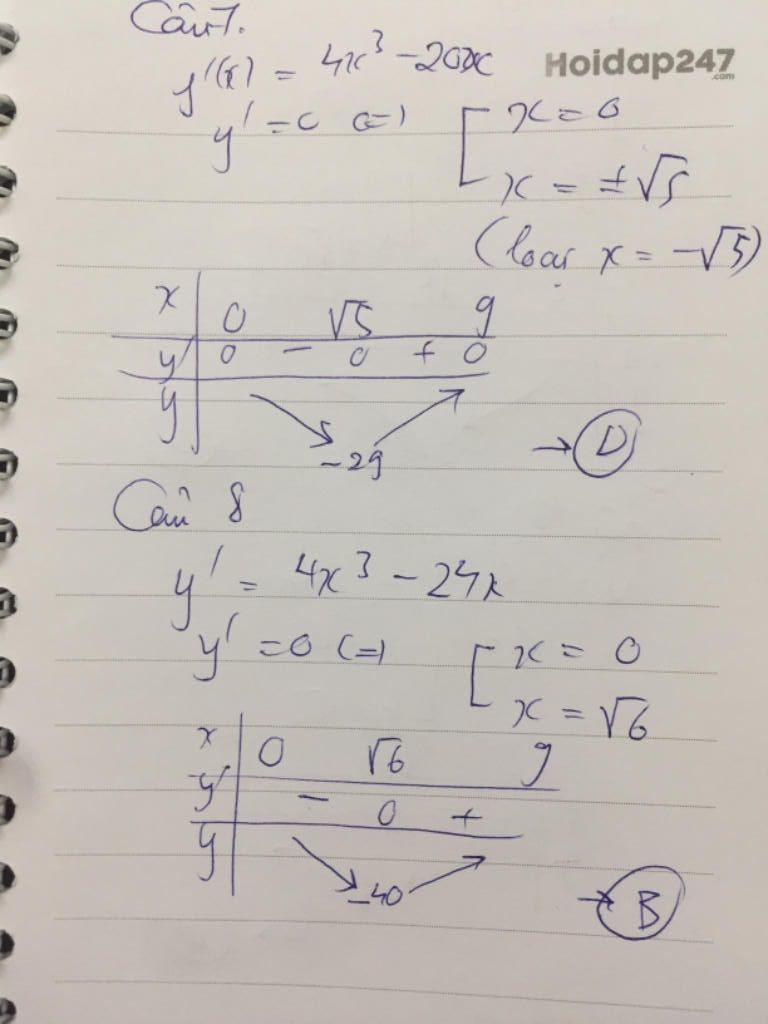 Câu 7.
y'(x) = 4x³ - 20x
Hoidap247
.com
y' = 0 (=) [ x = 0
x = ±√5
(loại x = -√5)
x | 0 √5 9
y' | 0 - 0 + 0
y | ↘ -29 ↗
→ D
Câu 8
y' = 4x³ - 24x
y' = 0 (=) [ x = 0
x = √6
x | 0 √6 9
y' | - 0 +
y | ↘ -40 ↗
→ B